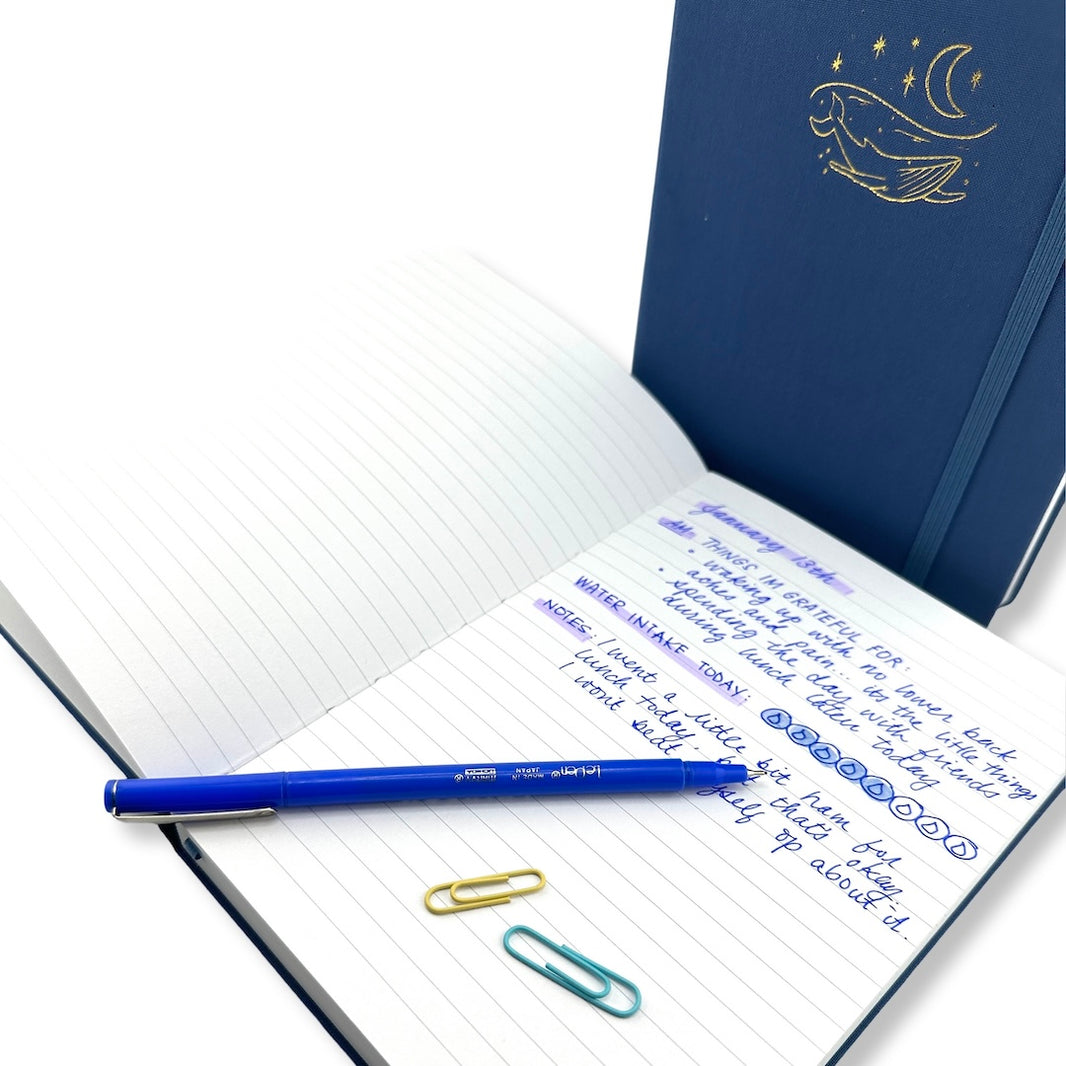 January 13th
AM: THINGS IM GRATEFUL FOR:
• waking up with no lower back
aches and pain... its the little things
• spending the day with friends
during lunch later today
WATER INTAKE TODAY:
NOTES: I went a little bit ham for
lunch today, but thats okay.
I wont beat myself up about it.
Le Pen
MADE IN
JAPAN